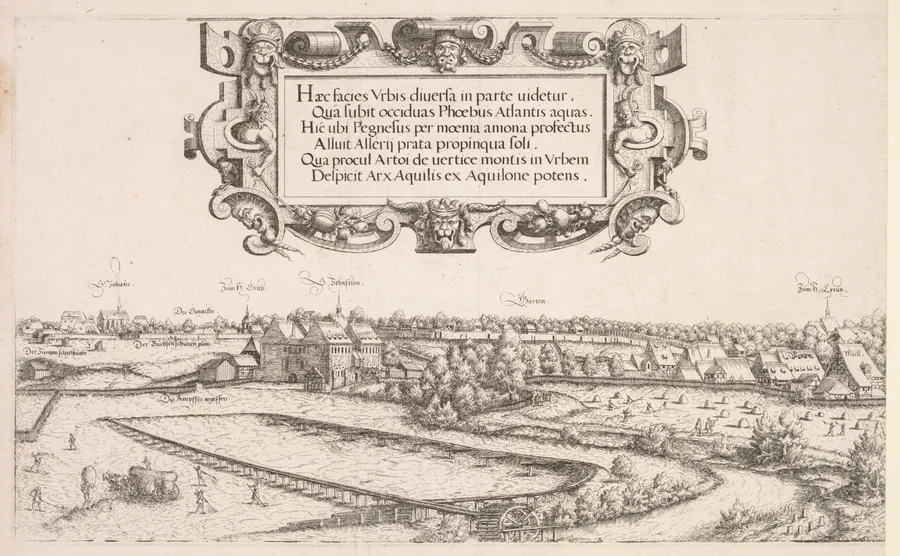 Hæc facies Vrbis diuersa in parte uidetur.
Quâ subit occiduas Phœbus Atlantis aquas.
Hîc ubi Pegnesus per mœnia amœna profectus
Alluit Allerij prata propinqua soli.
Qua procul Artoi de uertice montis in Vrbem
Despicit Arx Aquilis ex Aquilone potens.
S. Johans.
Zum H. Grab.
S. Sebastian.
Garten.
Zum H. Creutz.
Der
Der Büchsenschützen plan.
Müll.